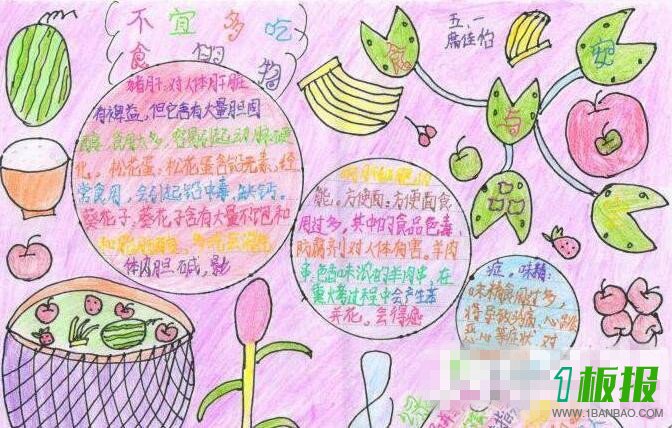 不宜多吃
食的物
五、一
席佳怡
食
与
安
猪肝：对人体肝脏
有裨益，但它含有大量胆固
醇，食用太多，容易引起动脉硬
化。松花蛋：松花蛋含铅元素，经
常食用，会引起铅中毒，缺钙。
葵花子：葵花子含有大量不饱和
体内胆碱，影
响肝细胞功
能。方便面：方便面食
用过多，其中的食品色素、
防腐剂对人体有害。羊肉
串：色香味浓的羊肉串，在
熏火烤过程中会产生苯
并芘，会得癌
症。味精：
味精食用过多，
将导致头痛、心跳
恶心等症状，对
1板报
WWW.1BANBAO.COM